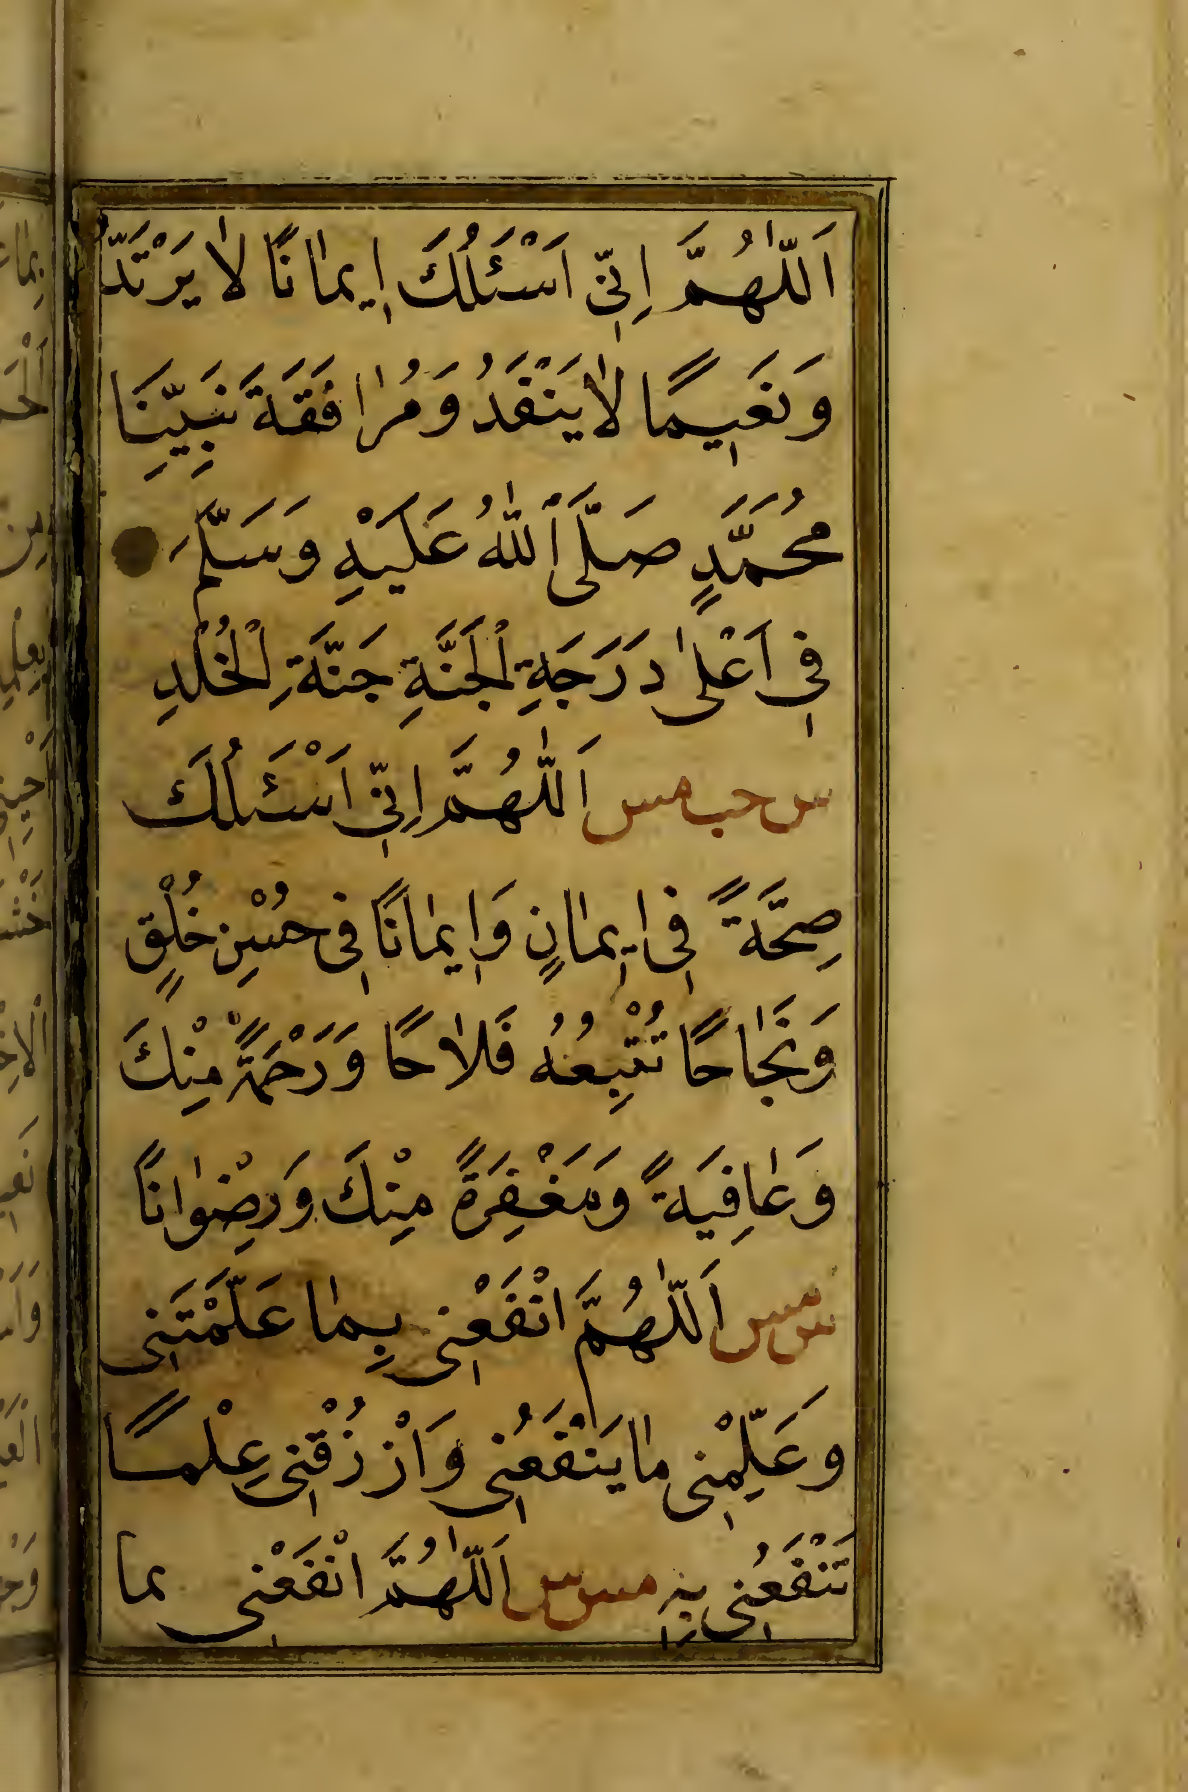 اَللّٰهُمَّ اِنِّى اَسْئَلُكَ اِيمَانًا لَا يَرْتَدُّ
وَنَعِيمًا لَا يَنْفَدُ وَمُرَافَقَةَ نَبِيِّنَا
مُحَمَّدٍ صَلَّى اللّٰهُ عَلَيْهِ وَسَلَّمَ
فِى اَعْلٰى دَرَجَةِ الْجَنَّةِ جَنَّةِ الْخُلْدِ
س حب مس اَللّٰهُمَّ اِنِّى اَسْئَلُكَ
صِحَّةً فِى اِيمَانٍ وَاِيمَانًا فِى حُسْنِ خُلُقٍ
وَنَجَاحًا تُتْبِعُهُ فَلَاحًا وَرَحْمَةً مِنْكَ
وَعَافِيَةً وَمَغْفِرَةً مِنْكَ وَرِضْوَانًا
اَللّٰهُمَّ انْفَعْنِى بِمَا عَلَّمْتَنِى
وَعَلِّمْنِى مَا يَنْفَعُنِى وَارْزُقْنِى عِلْمًا
تَنْفَعُنِى بِهِ مس س اَللّٰهُمَّ انْفَعْنِى بما